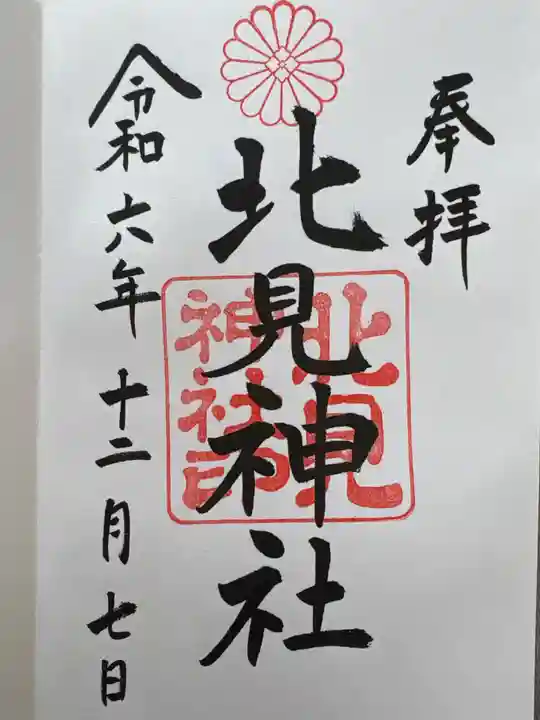 奉拝
北見神社
北見
神社印
令和六年十二月七日